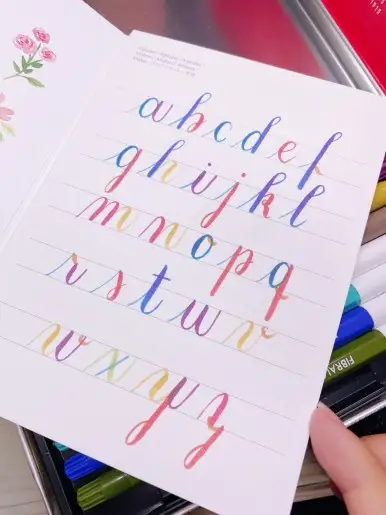 abcdef
ghijkl
mnopq
rstuv
wxyz
FIBRAL